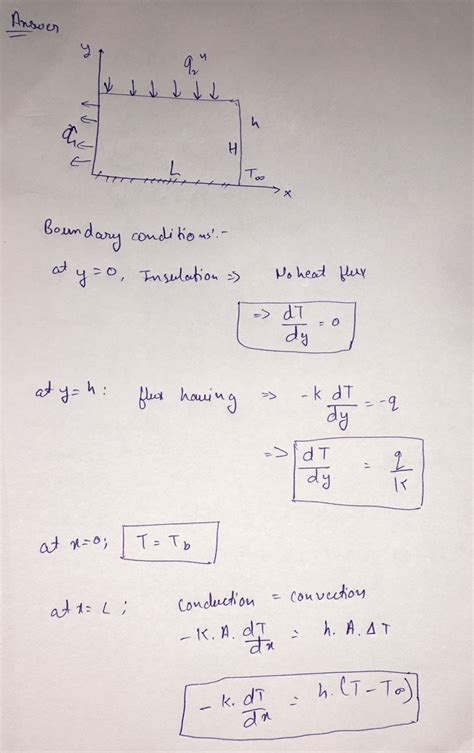 Answer
y
q₂"
h
q₁
H
L
T∞
x
Boundary conditions:-
at y=0, Insulation => No heat flux
=> dT/dy = 0
at y=h: flux having => -k dT/dy = -q
=> dT/dy = q/k
at x=0; T = Tb
at x= L; Conduction = convection
-K.A. dT/dx = h.A.ΔT
-k. dT/dx = h.(T-T∞)